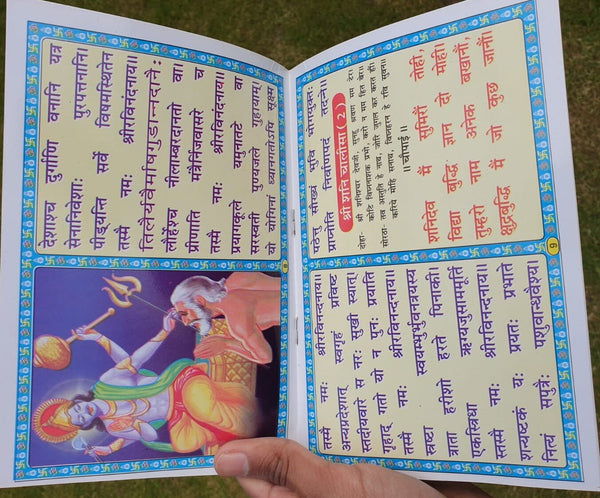 देशाश्च दुर्गाणि वनानि यत्र
सेनानिवेशाः पुरपत्तनानि।
पीड्यन्ति सर्वे विषमस्थितेन
तस्मै नमः श्रीरविनंदनाय॥
तिलैयवैर्माषगुडान्नदानैः
लौहेश्च नीलाम्बरदानतो वा।
प्रीणाति मत्रैर्निजवासरे च
तस्मै नमः श्रीरविनंदनाय॥
प्रयागकूले यमुनातटे वा
सरस्वती पुण्यजले गुहायाम्।
यो योगिनां ध्यानगतोऽपि सूक्ष्म
तस्मै नमः श्रीरविनन्दनाय॥
अन्यप्रदेशात् स्वगृहं प्रविष्ट
स्तदीयवारे स नरः सुखी स्यात्।
गृहाद् गतो यो न पुनः प्रयाति
तस्मै नमः श्रीरविनन्दनाय॥
स्रष्टा स्वयम्भूर्भुवनत्रयस्य
त्राता हरीशो हरते पिनाकी।
एकस्त्रिधा ऋग्यजुसाममूर्ति
स्तस्मै नमः श्रीरविनन्दनाय॥
शन्यष्टकं यः प्रयतः प्रभाते
नित्यं सपुत्रैः पशुबान्धवैश्य।
पठेत्तु सौख्यं भुवि भोगयुक्तः
प्राप्नोति निर्वाणपदं तदन्ते॥
श्री शनि चालीसा (2)
दोहा- श्री शनिश्चर देवजी, सुनहु श्रवण मम टेर।
कोटि विघ्ननाशक प्रभो, करो न मम हित बेर॥
सोरठा- तव अस्तुति हे नाथ, जोरि जुगल कर करत हौं।
करिये मोहि सनाथ, विघ्नहरन हे रवि सुवन॥
॥चौपाई॥
शनिदेव मैं सुमिरौं तोही,
विद्या बुद्धि ज्ञान दो मोही।
तुम्हरो नाम अनेक बखानौं,
क्षुद्रबुद्धि मैं जो कुछ जानौं।